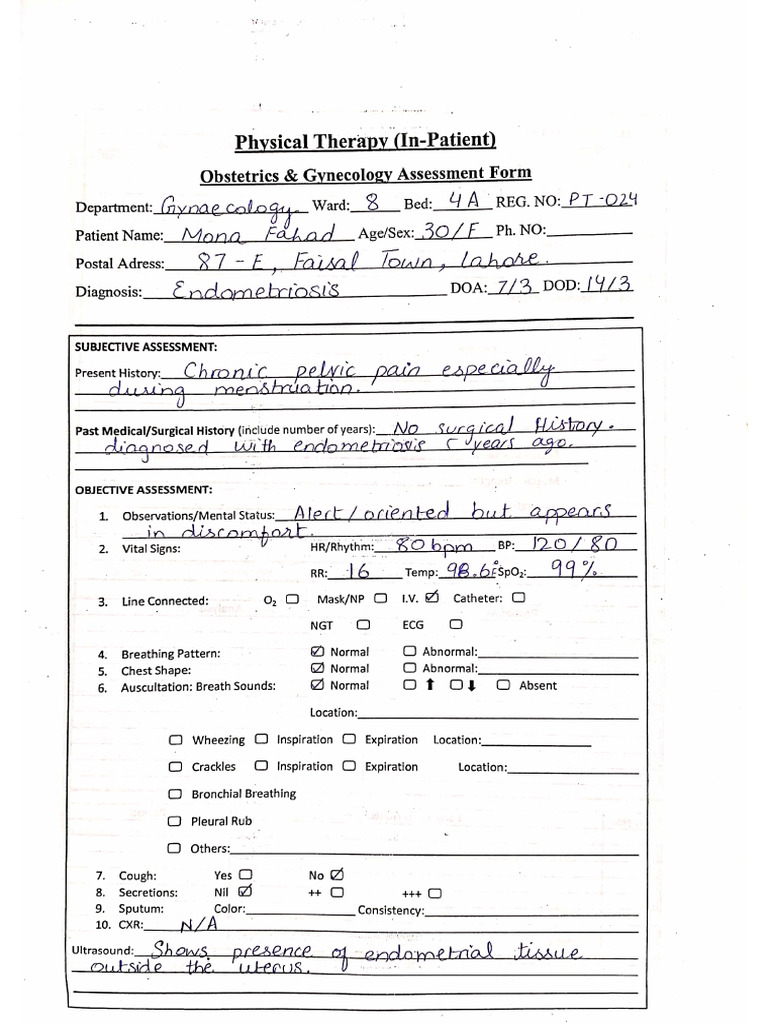 Physical Therapy (In-Patient)
Obstetrics & Gynecology Assessment Form
Department: Gynaecology Ward: 8 Bed: 4A REG. NO: PT-024
Patient Name: Mona Fahad Age/Sex: 30/F Ph. NO:
Postal Adress: 87-E, Faisal Town, Lahore.
Diagnosis: Endometriosis DOA: 7/3 DOD: 14/3
SUBJECTIVE ASSESSMENT:
Present History: Chronic pelvic pain especially
during menstruation.
Past Medical/Surgical History (include number of years): No surgical History.
diagnosed with endometriosis 5 years ago.
OBJECTIVE ASSESSMENT:
1. Observations/Mental Status: Alert/oriented but appears
in discomfort.
2. Vital Signs: HR/Rhythm: 80 bpm BP: 120/80
RR: 16 Temp: 98.6°F SpO₂: 99%
3. Line Connected: O₂ ☐ Mask/NP ☐ I.V. ☑ Catheter: ☐
NGT ☐ ECG ☐
4. Breathing Pattern: ☑ Normal ☐ Abnormal:
5. Chest Shape: ☑ Normal ☐ Abnormal:
6. Auscultation: Breath Sounds: ☑ Normal ☐ ⬆ ☐ ⬇ ☐ Absent
Location:
☐ Wheezing ☐ Inspiration ☐ Expiration Location:
☐ Crackles ☐ Inspiration ☐ Expiration Location:
☐ Bronchial Breathing
☐ Pleural Rub
☐ Others:
7. Cough: Yes ☐ No ☑
8. Secretions: Nil ☑ ++ ☐ +++ ☐
9. Sputum: Color: Consistency:
10. CXR: N/A
Ultrasound: Shows presence of endometrial tissue
outside the uterus.